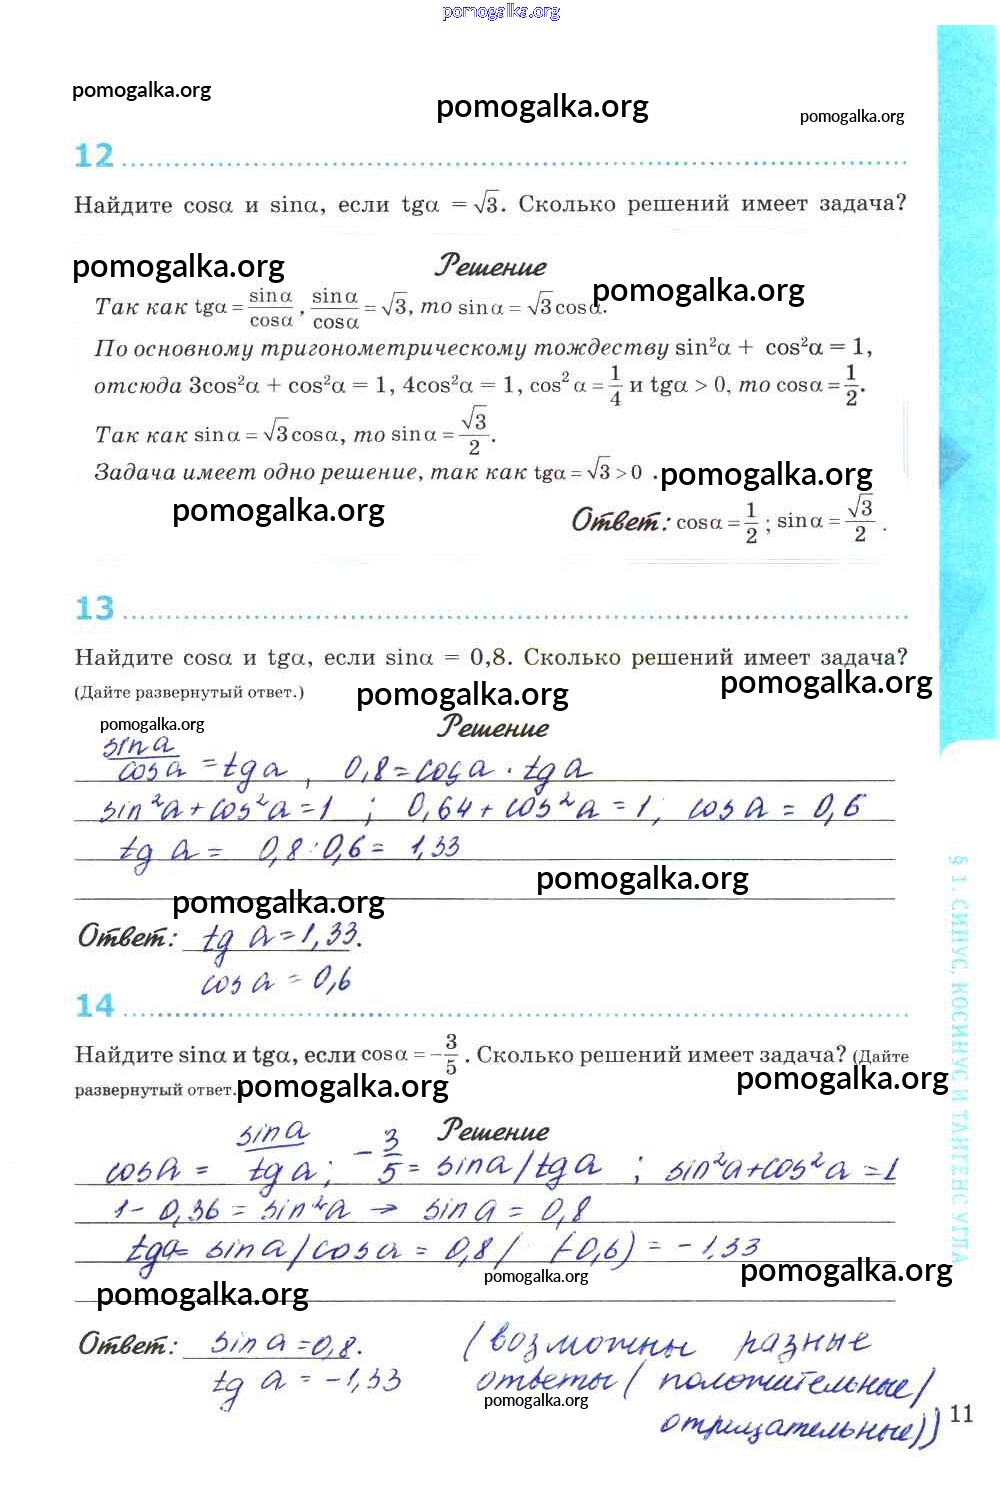 pomogalka.org
pomogalka.org
pomogalka.org
pomogalka.org
12
Найдите cosα и sinα, если tgα = √3. Сколько решений имеет задача?
pomogalka.org
Решение
pomogalka.org
Так как tgα = sinα/cosα, sinα/cosα = √3, то sinα = √3cosα.
По основному тригонометрическому тождеству sin²α + cos²α = 1,
отсюда 3cos²α + cos²α = 1, 4cos²α = 1, cos²α = 1/4 и tgα > 0, то cosα = 1/2.
Так как sinα = √3cosα, то sinα = √3/2.
Задача имеет одно решение, так как tgα = √3 > 0 .
pomogalka.org
pomogalka.org
Ответ: cosα = 1/2 ; sinα = √3/2 .
13
Найдите cosα и tgα, если sinα = 0,8. Сколько решений имеет задача?
(Дайте развернутый ответ.)
pomogalka.org
pomogalka.org
pomogalka.org
Решение
sin a/cos a = tg a , 0,8 = cos a · tg a
sin²a + cos²a = 1 ; 0,64 + cos²a = 1; cos a = 0,6
tg a = 0,8 : 0,6 = 1,33
pomogalka.org
pomogalka.org
Ответ: tg a = 1,33.
cos a = 0,6
14
Найдите sinα и tgα, если cosα = -3/5 . Сколько решений имеет задача? (Дайте
развернутый ответ.
pomogalka.org
pomogalka.org
Решение
cos a = sin a/tg a ; -3/5 = sin a/tg a ; sin²a+cos²a = 1
1 - 0,36 = sin²a → sin a = 0,8
tg a = sin a/cos a = 0,8/ (-0,6) = -1,33
pomogalka.org
pomogalka.org
pomogalka.org
Ответ: sin a = 0,8.
tg a = -1,33
(возможны разные
ответы (положительные/
отрицательные))
pomogalka.org
11
§ 1. СИНУС, КОСИНУС И ТАНГЕНС УГЛА